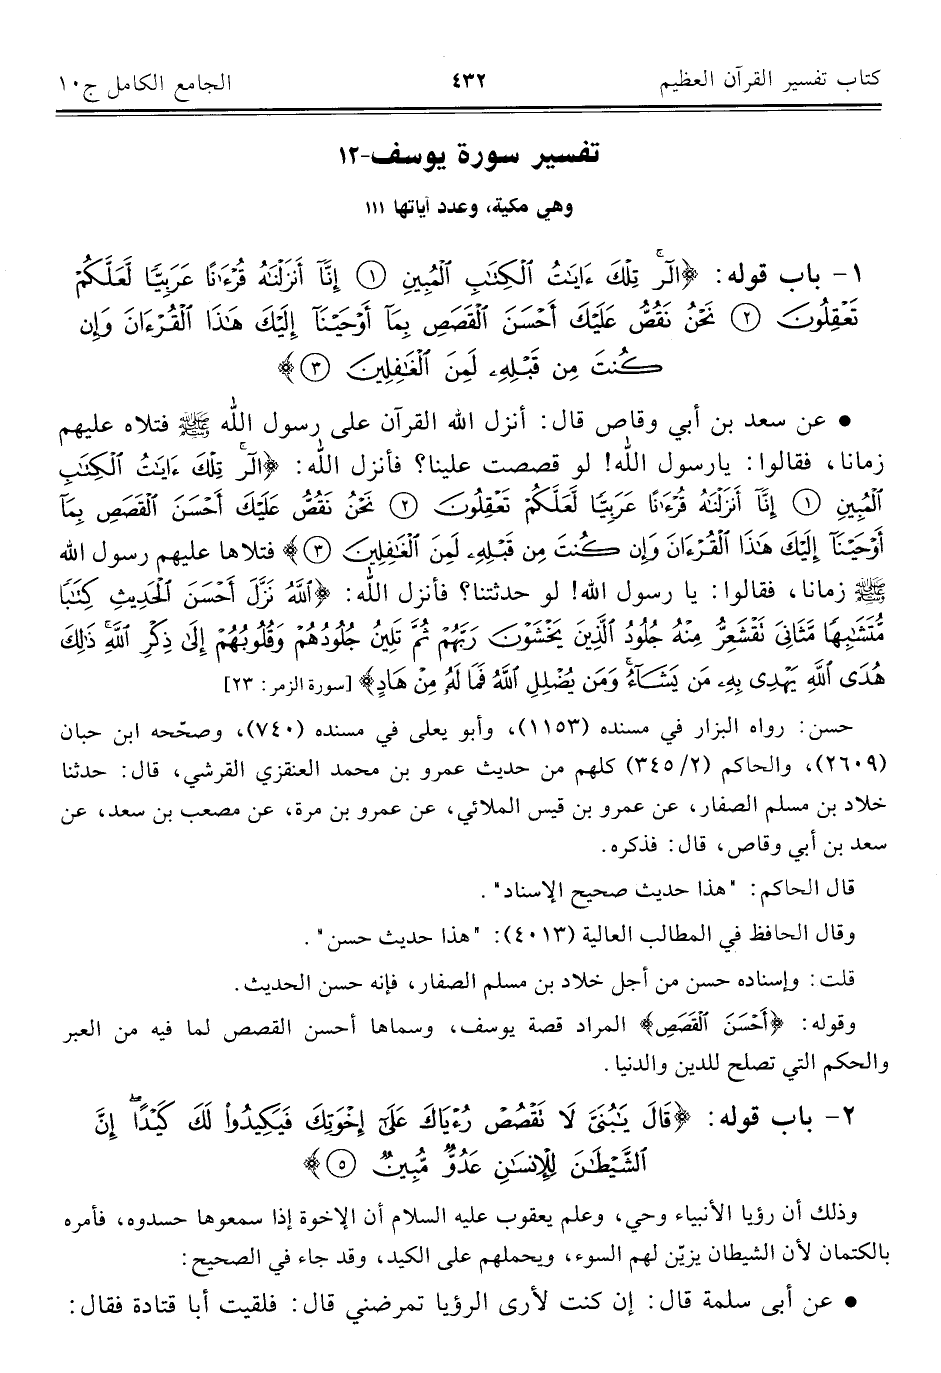 كتاب تفسير القرآن العظيم ٤٣٢ الجامع الكامل ج١٠
تفسير سورة يوسف-١٢
وهي مكية، وعدد آياتها ١١١
١- باب قوله: ﴿الٓرۚ تِلۡكَ ءَايَٰتُ ٱلۡكِتَٰبِ ٱلۡمُبِينِ ١ إِنَّآ أَنزَلۡنَٰهُ قُرۡءَٰنًا عَرَبِيّٗا لَّعَلَّكُمۡ
تَعۡقِلُونَ ٢ نَحۡنُ نَقُصُّ عَلَيۡكَ أَحۡسَنَ ٱلۡقَصَصِ بِمَآ أَوۡحَيۡنَآ إِلَيۡكَ هَٰذَا ٱلۡقُرۡءَانَ وَإِن
كُنتَ مِن قَبۡلِهِۦ لَمِنَ ٱلۡغَٰفِلِينَ ٣﴾
• عن سعد بن أبي وقاص قال: أنزل الله القرآن على رسول الله ﷺ فتلاه عليهم
زمانا، فقالوا: يارسول الله! لو قصصت علينا؟ فأنزل الله: ﴿الٓرۚ تِلۡكَ ءَايَٰتُ ٱلۡكِتَٰبِ
ٱلۡمُبِينِ ١ إِنَّآ أَنزَلۡنَٰهُ قُرۡءَٰنًا عَرَبِيّٗا لَّعَلَّكُمۡ تَعۡقِلُونَ ٢ نَحۡنُ نَقُصُّ عَلَيۡكَ أَحۡسَنَ ٱلۡقَصَصِ بِمَآ
أَوۡحَيۡنَآ إِلَيۡكَ هَٰذَا ٱلۡقُرۡءَانَ وَإِن كُنتَ مِن قَبۡلِهِۦ لَمِنَ ٱلۡغَٰفِلِينَ ٣﴾ فتلاها عليهم رسول الله
ﷺ زمانا، فقالوا: يا رسول الله! لو حدثتنا؟ فأنزل الله: ﴿ٱللَّهُ نَزَّلَ أَحۡسَنَ ٱلۡحَدِيثِ كِتَٰبٗا
مُّتَشَٰبِهٗا مَّثَانِيَ تَقۡشَعِرُّ مِنۡهُ جُلُودُ ٱلَّذِينَ يَخۡشَوۡنَ رَبَّهُمۡ ثُمَّ تَلِينُ جُلُودُهُمۡ وَقُلُوبُهُمۡ إِلَىٰ ذِكۡرِ ٱللَّهِۚ ذَٰلِكَ
هُدَى ٱللَّهِ يَهۡدِي بِهِۦ مَن يَشَآءُۚ وَمَن يُضۡلِلِ ٱللَّهُ فَمَا لَهُۥ مِنۡ هَادٍ﴾ [سورة الزمر: ٢٣]
حسن: رواه البزار في مسنده (١١٥٣)، وأبو يعلى في مسنده (٧٤٠)، وصحّحه ابن حبان
(٢٦٠٩)، والحاكم (٣٤٥/٢) كلهم من حديث عمرو بن محمد العنقزي القرشي، قال: حدثنا
خلاد بن مسلم الصفار، عن عمرو بن قيس الملائي، عن عمرو بن مرة، عن مصعب بن سعد، عن
سعد بن أبي وقاص، قال: فذكره.
قال الحاكم: "هذا حديث صحيح الإسناد".
وقال الحافظ في المطالب العالية (٤٠١٣): "هذا حديث حسن".
قلت: وإسناده حسن من أجل خلاد بن مسلم الصفار، فإنه حسن الحديث.
وقوله: ﴿أَحۡسَنَ ٱلۡقَصَصِ﴾ المراد قصة يوسف، وسماها أحسن القصص لما فيه من العبر
والحكم التي تصلح للدين والدنيا.
٢- باب قوله: ﴿قَالَ يَٰبُنَيَّ لَا تَقۡصُصۡ رُءۡيَاكَ عَلَىٰٓ إِخۡوَتِكَ فَيَكِيدُواْ لَكَ كَيۡدًاۖ إِنَّ
ٱلشَّيۡطَٰنَ لِلۡإِنسَٰنِ عَدُوّٞ مُّبِينٞ ٥﴾
وذلك أن رؤيا الأنبياء وحي، وعلم يعقوب عليه السلام أن الإخوة إذا سمعوها حسدوه، فأمره
بالكتمان لأن الشيطان يزيّن لهم السوء، ويحملهم على الكيد، وقد جاء في الصحيح:
• عن أبي سلمة قال: إن كنت لأرى الرؤيا تمرضني قال: فلقيت أبا قتادة فقال: